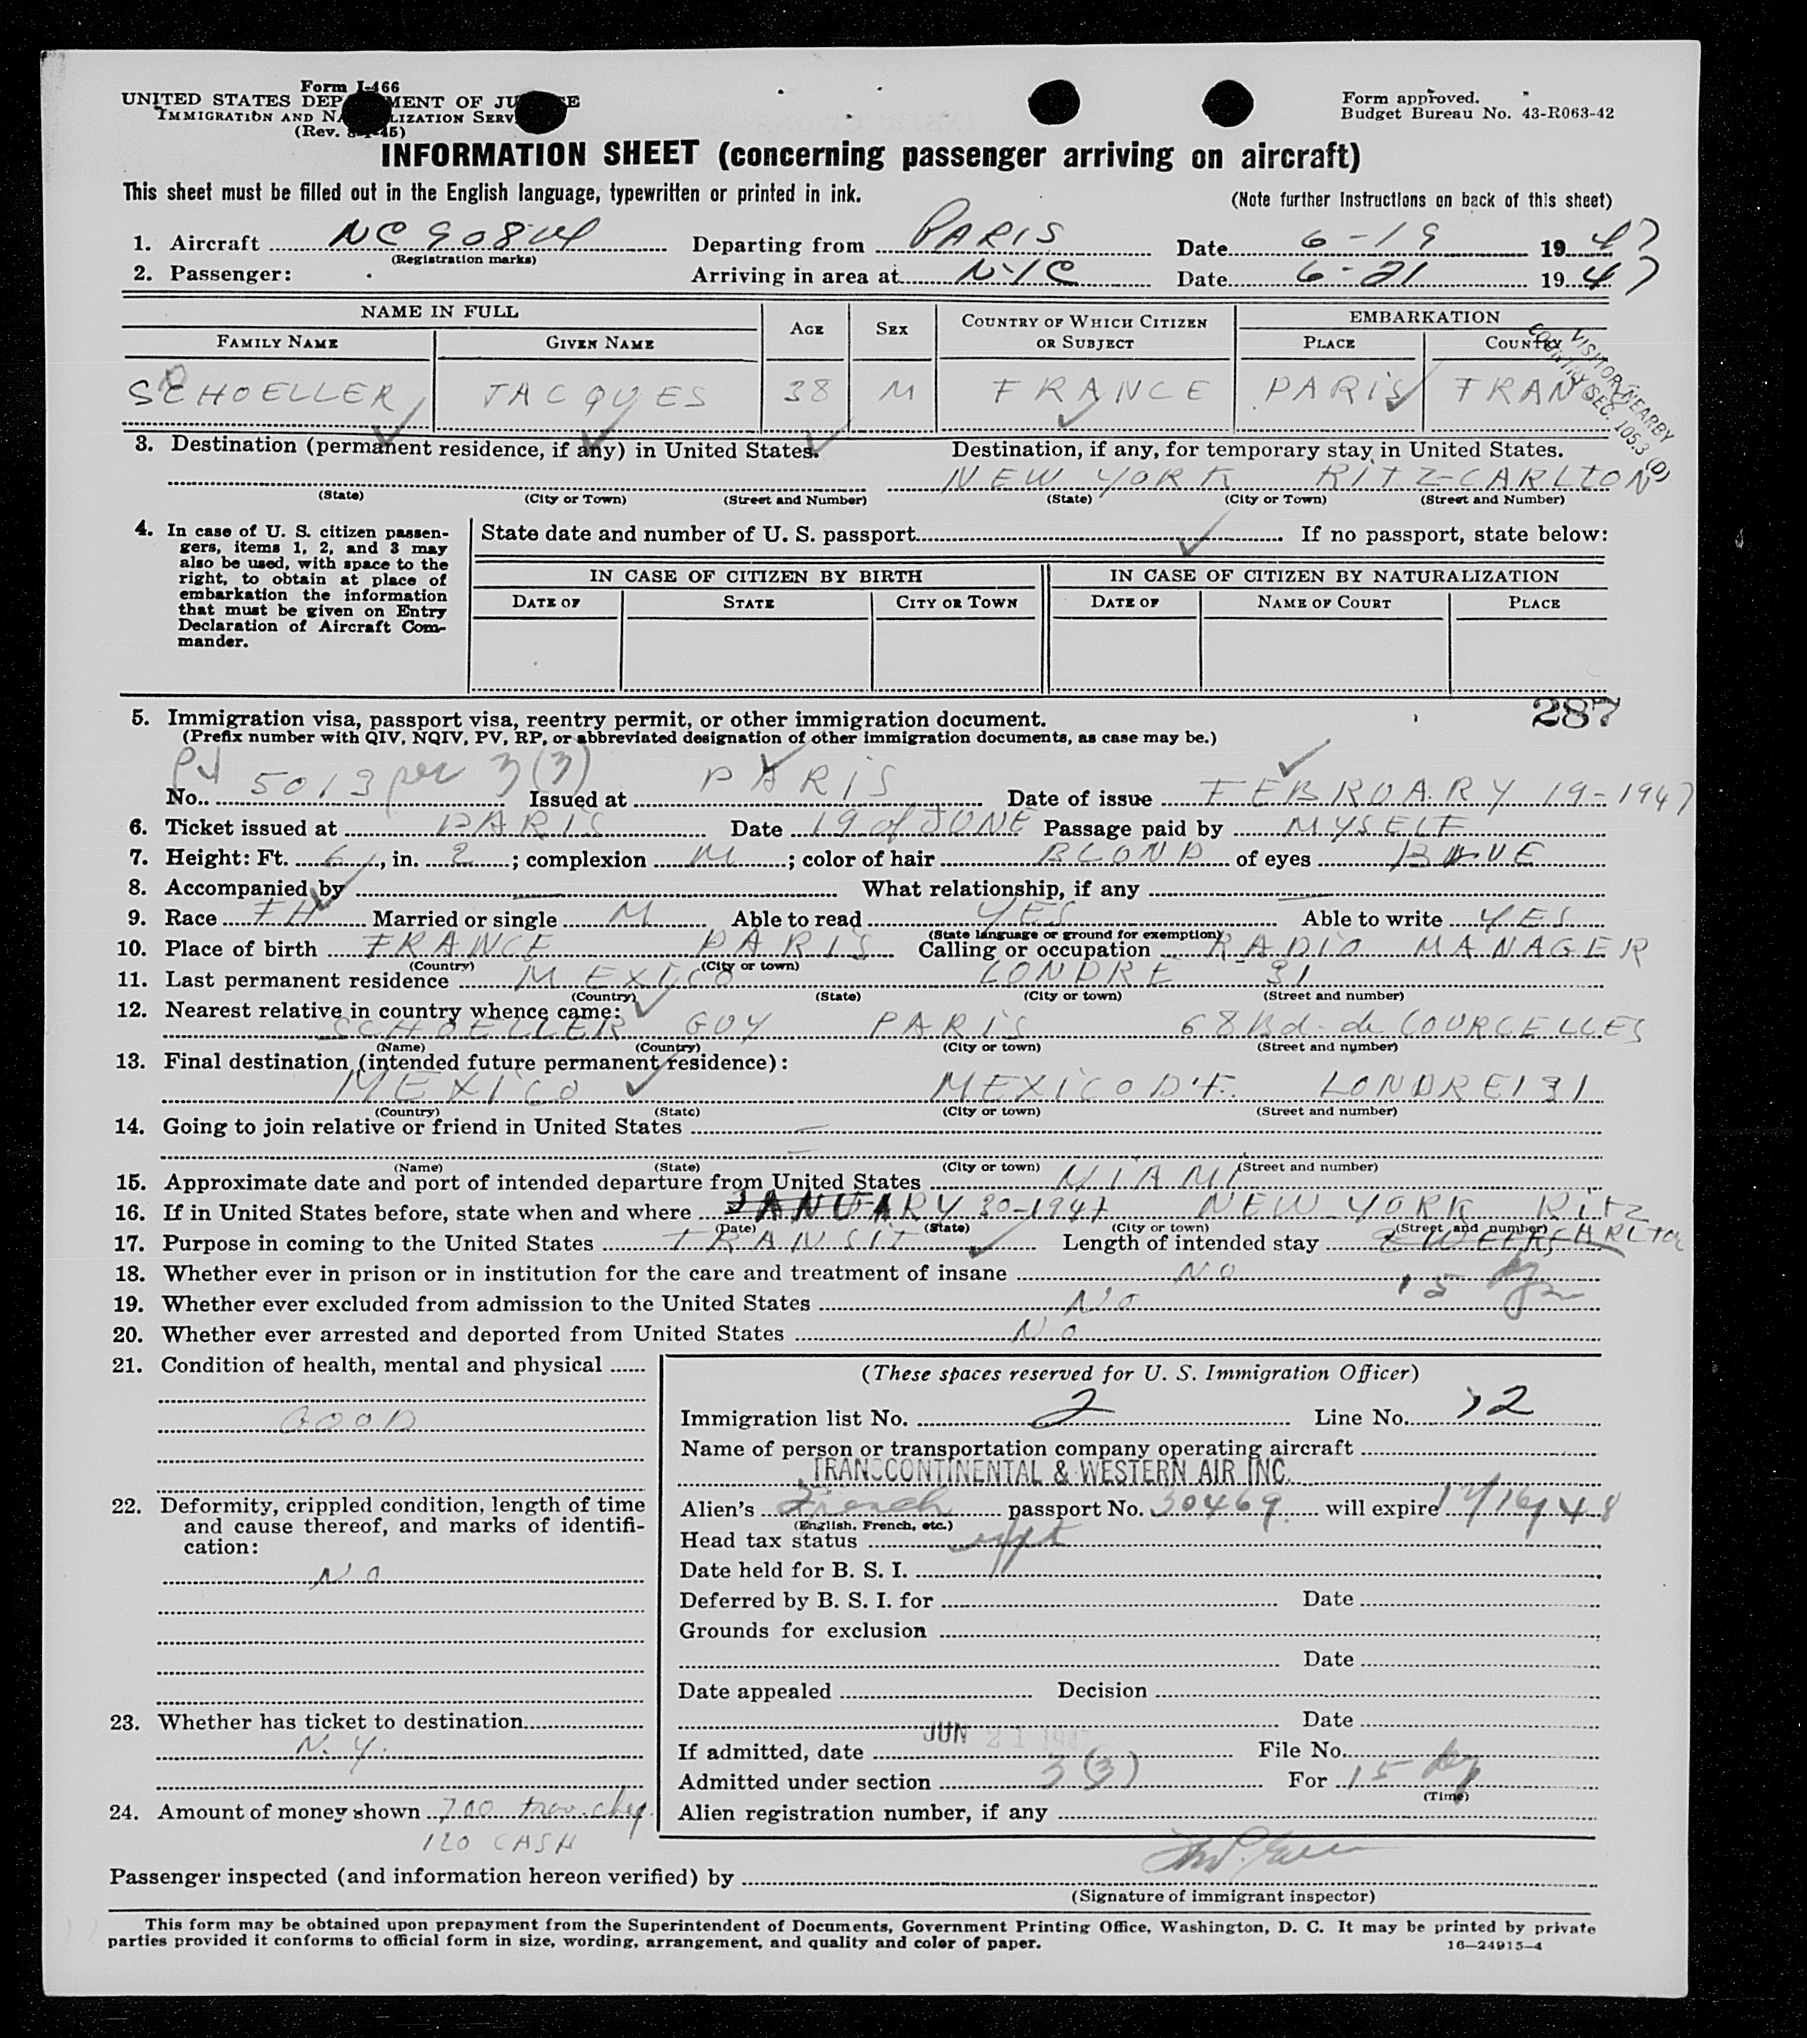 Form I-466
UNITED STATES DEPARTMENT OF JUSTICE
IMMIGRATION AND NATURALIZATION SERV
(Rev. 8-1-45)
Form approved.
Budget Bureau No. 43-R063-42
INFORMATION SHEET (concerning passenger arriving on aircraft)
This sheet must be filled out in the English language, typewritten or printed in ink.
(Note further instructions on back of this sheet)
1. Aircraft Departing from PARIS Date 6-19 1947
(Registration marks)
2. Passenger: Arriving in area at NYC Date 6-21 1947
NAME IN FULL AGE SEX COUNTRY OF WHICH CITIZEN OR SUBJECT EMBARKATION
FAMILY NAME GIVEN NAME PLACE COUNTRY
VISITOR NEARBY
COUNTRY (SEC. 105.3 (D)
SCHOELLER JACQUES 38 M FRANCE PARIS FRANCE
3. Destination (permanent residence, if any) in United States. Destination, if any, for temporary stay in United States.
NEW YORK RITZ-CARLTON
(State) (City or Town) (Street and Number) (State) (City or Town) (Street and Number)
4. In case of U. S. citizen passen-
gers, items 1, 2, and 3 may
also be used, with space to the
right, to obtain at place of
embarkation the information
that must be given on Entry
Declaration of Aircraft Com-
mander.
State date and number of U. S. passport If no passport, state below:
IN CASE OF CITIZEN BY BIRTH IN CASE OF CITIZEN BY NATURALIZATION
DATE OF STATE CITY OR TOWN DATE OF NAME OF COURT PLACE
287
5. Immigration visa, passport visa, reentry permit, or other immigration document.
(Prefix number with QIV, NQIV, PV, RP, or abbreviated designation of other immigration documents, as case may be.)
No. PV 5013 per 3(3) Issued at PARIS Date of issue FEBRUARY 19-1947
6. Ticket issued at PARIS Date 19 of JUNE Passage paid by MYSELF
7. Height: Ft. 6, in. 2; complexion M; color of hair BLOND of eyes BLUE
8. Accompanied by — What relationship, if any —
9. Race FH Married or single M Able to read YES Able to write YES
(State language or ground for exemption)
10. Place of birth FRANCE PARIS Calling or occupation RADIO MANAGER
(Country) (City or town)
11. Last permanent residence MEXICO LONDRE 31
(Country) (State) (City or town) (Street and number)
12. Nearest relative in country whence came:
SCHOELLER GUY PARIS 68 Bd. de COURCELLES
(Name) (Country) (City or town) (Street and number)
13. Final destination (intended future permanent residence):
MEXICO MEXICO D.F. LONDRE 31
(Country) (State) (City or town) (Street and number)
14. Going to join relative or friend in United States —
—
(Name) (State) (City or town) (Street and number)
15. Approximate date and port of intended departure from United States MIAMI
16. If in United States before, state when and where JANUARY 30-1947 NEW YORK Ritz
(Date) (State) (City or town) (Street and number)
CARLTON
17. Purpose in coming to the United States TRANSIT Length of intended stay 2 WEEKS
15
18. Whether ever in prison or in institution for the care and treatment of insane NO
19. Whether ever excluded from admission to the United States NO
20. Whether ever arrested and deported from United States NO
21. Condition of health, mental and physical
GOOD
22. Deformity, crippled condition, length of time
and cause thereof, and marks of identifi-
cation:
NO
23. Whether has ticket to destination
N.Y.
24. Amount of money shown 700 trav. cheq.
120 CASH
(These spaces reserved for U. S. Immigration Officer)
Immigration list No. 2 Line No. 12
Name of person or transportation company operating aircraft
TRANSCONTINENTAL & WESTERN AIR INC.
Alien's French passport No. 30469 will expire 12/16/48
(English, French, etc.)
Head tax status
Date held for B. S. I.
Deferred by B. S. I. for Date
Grounds for exclusion
Date
Date appealed Decision
Date
If admitted, date JUN 21 1947 File No.
Admitted under section 3(3) For 15
(Time)
Alien registration number, if any
Passenger inspected (and information hereon verified) by
(Signature of immigrant inspector)
This form may be obtained upon prepayment from the Superintendent of Documents, Government Printing Office, Washington, D. C. It may be printed by private
parties provided it conforms to official form in size, wording, arrangement, and quality and color of paper.
16—24915-4